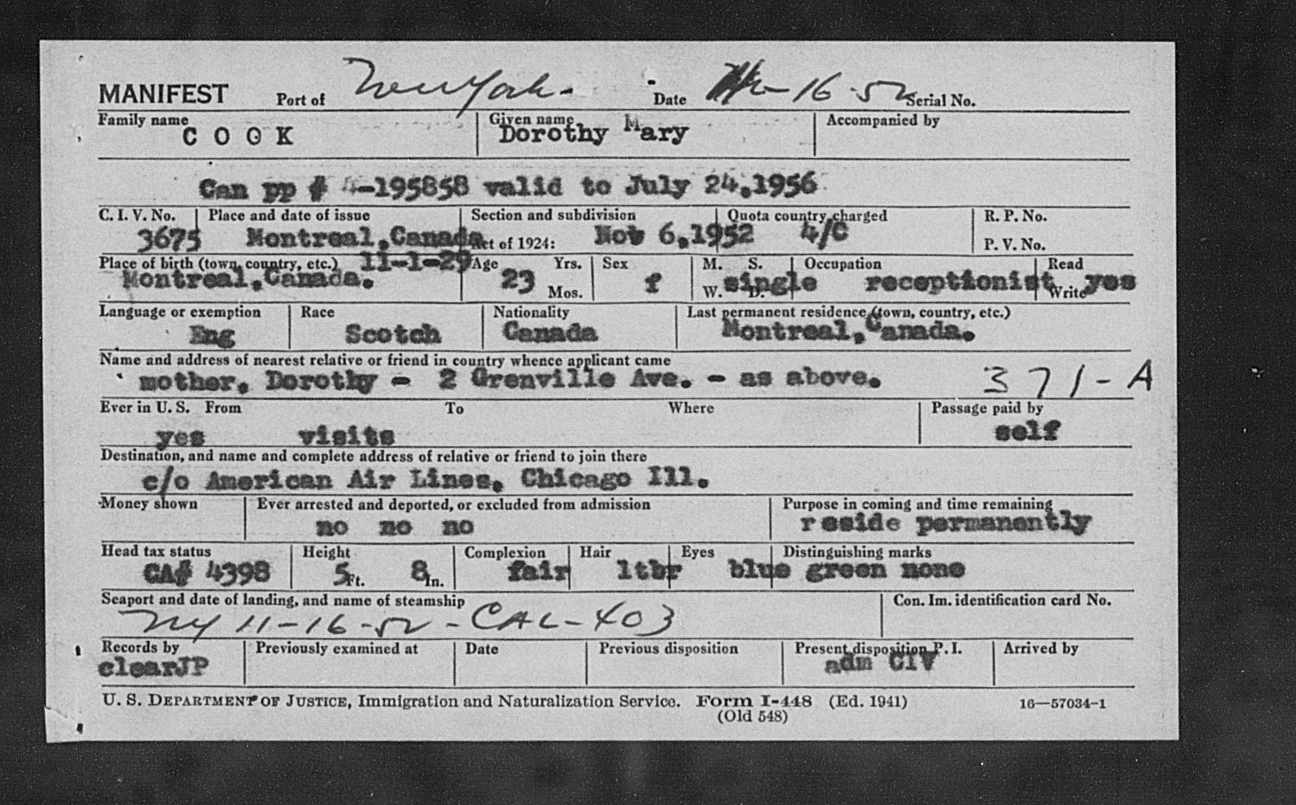 MANIFEST Port of New York - Date 16-52 Serial No.
Family name Given name Accompanied by
COOK Dorothy Mary
Can pp # 4-195858 valid to July 24,1956
C. I. V. No. Place and date of issue Section and subdivision Quota country charged R. P. No.
3675 Montreal,Canada Act of 1924: Nov 6,1952 4/C P. V. No.
Place of birth (town, country, etc.) 11-1-29 Age Yrs. Sex M. S. Occupation Read
Montreal,Canada. 23 Mos. f W. single D. receptionist Write yes
Language or exemption Race Nationality Last permanent residence (town, country, etc.)
Eng Scotch Canada Montreal,Canada.
Name and address of nearest relative or friend in country whence applicant came
mother. Dorothy - 2 Grenville Ave. - as above. 371-A
Ever in U. S. From To Where Passage paid by
yes visits self
Destination, and name and complete address of relative or friend to join there
c/o American Air Lines, Chicago Ill.
Money shown Ever arrested and deported, or excluded from admission Purpose in coming and time remaining
no no no reside permanently
Head tax status Height Complexion Hair Eyes Distinguishing marks
CA# 4398 5 Ft. 8 In. fair ltbr blue green none
Seaport and date of landing, and name of steamship Con. Im. identification card No.
NY 11-16-52 - CAL-403
Records by Previously examined at Date Previous disposition Present disposition P. I. Arrived by
clearJP adm CIV
U. S. DEPARTMENT OF JUSTICE, Immigration and Naturalization Service. Form I-448 (Ed. 1941) 16—57034-1
(Old 548)